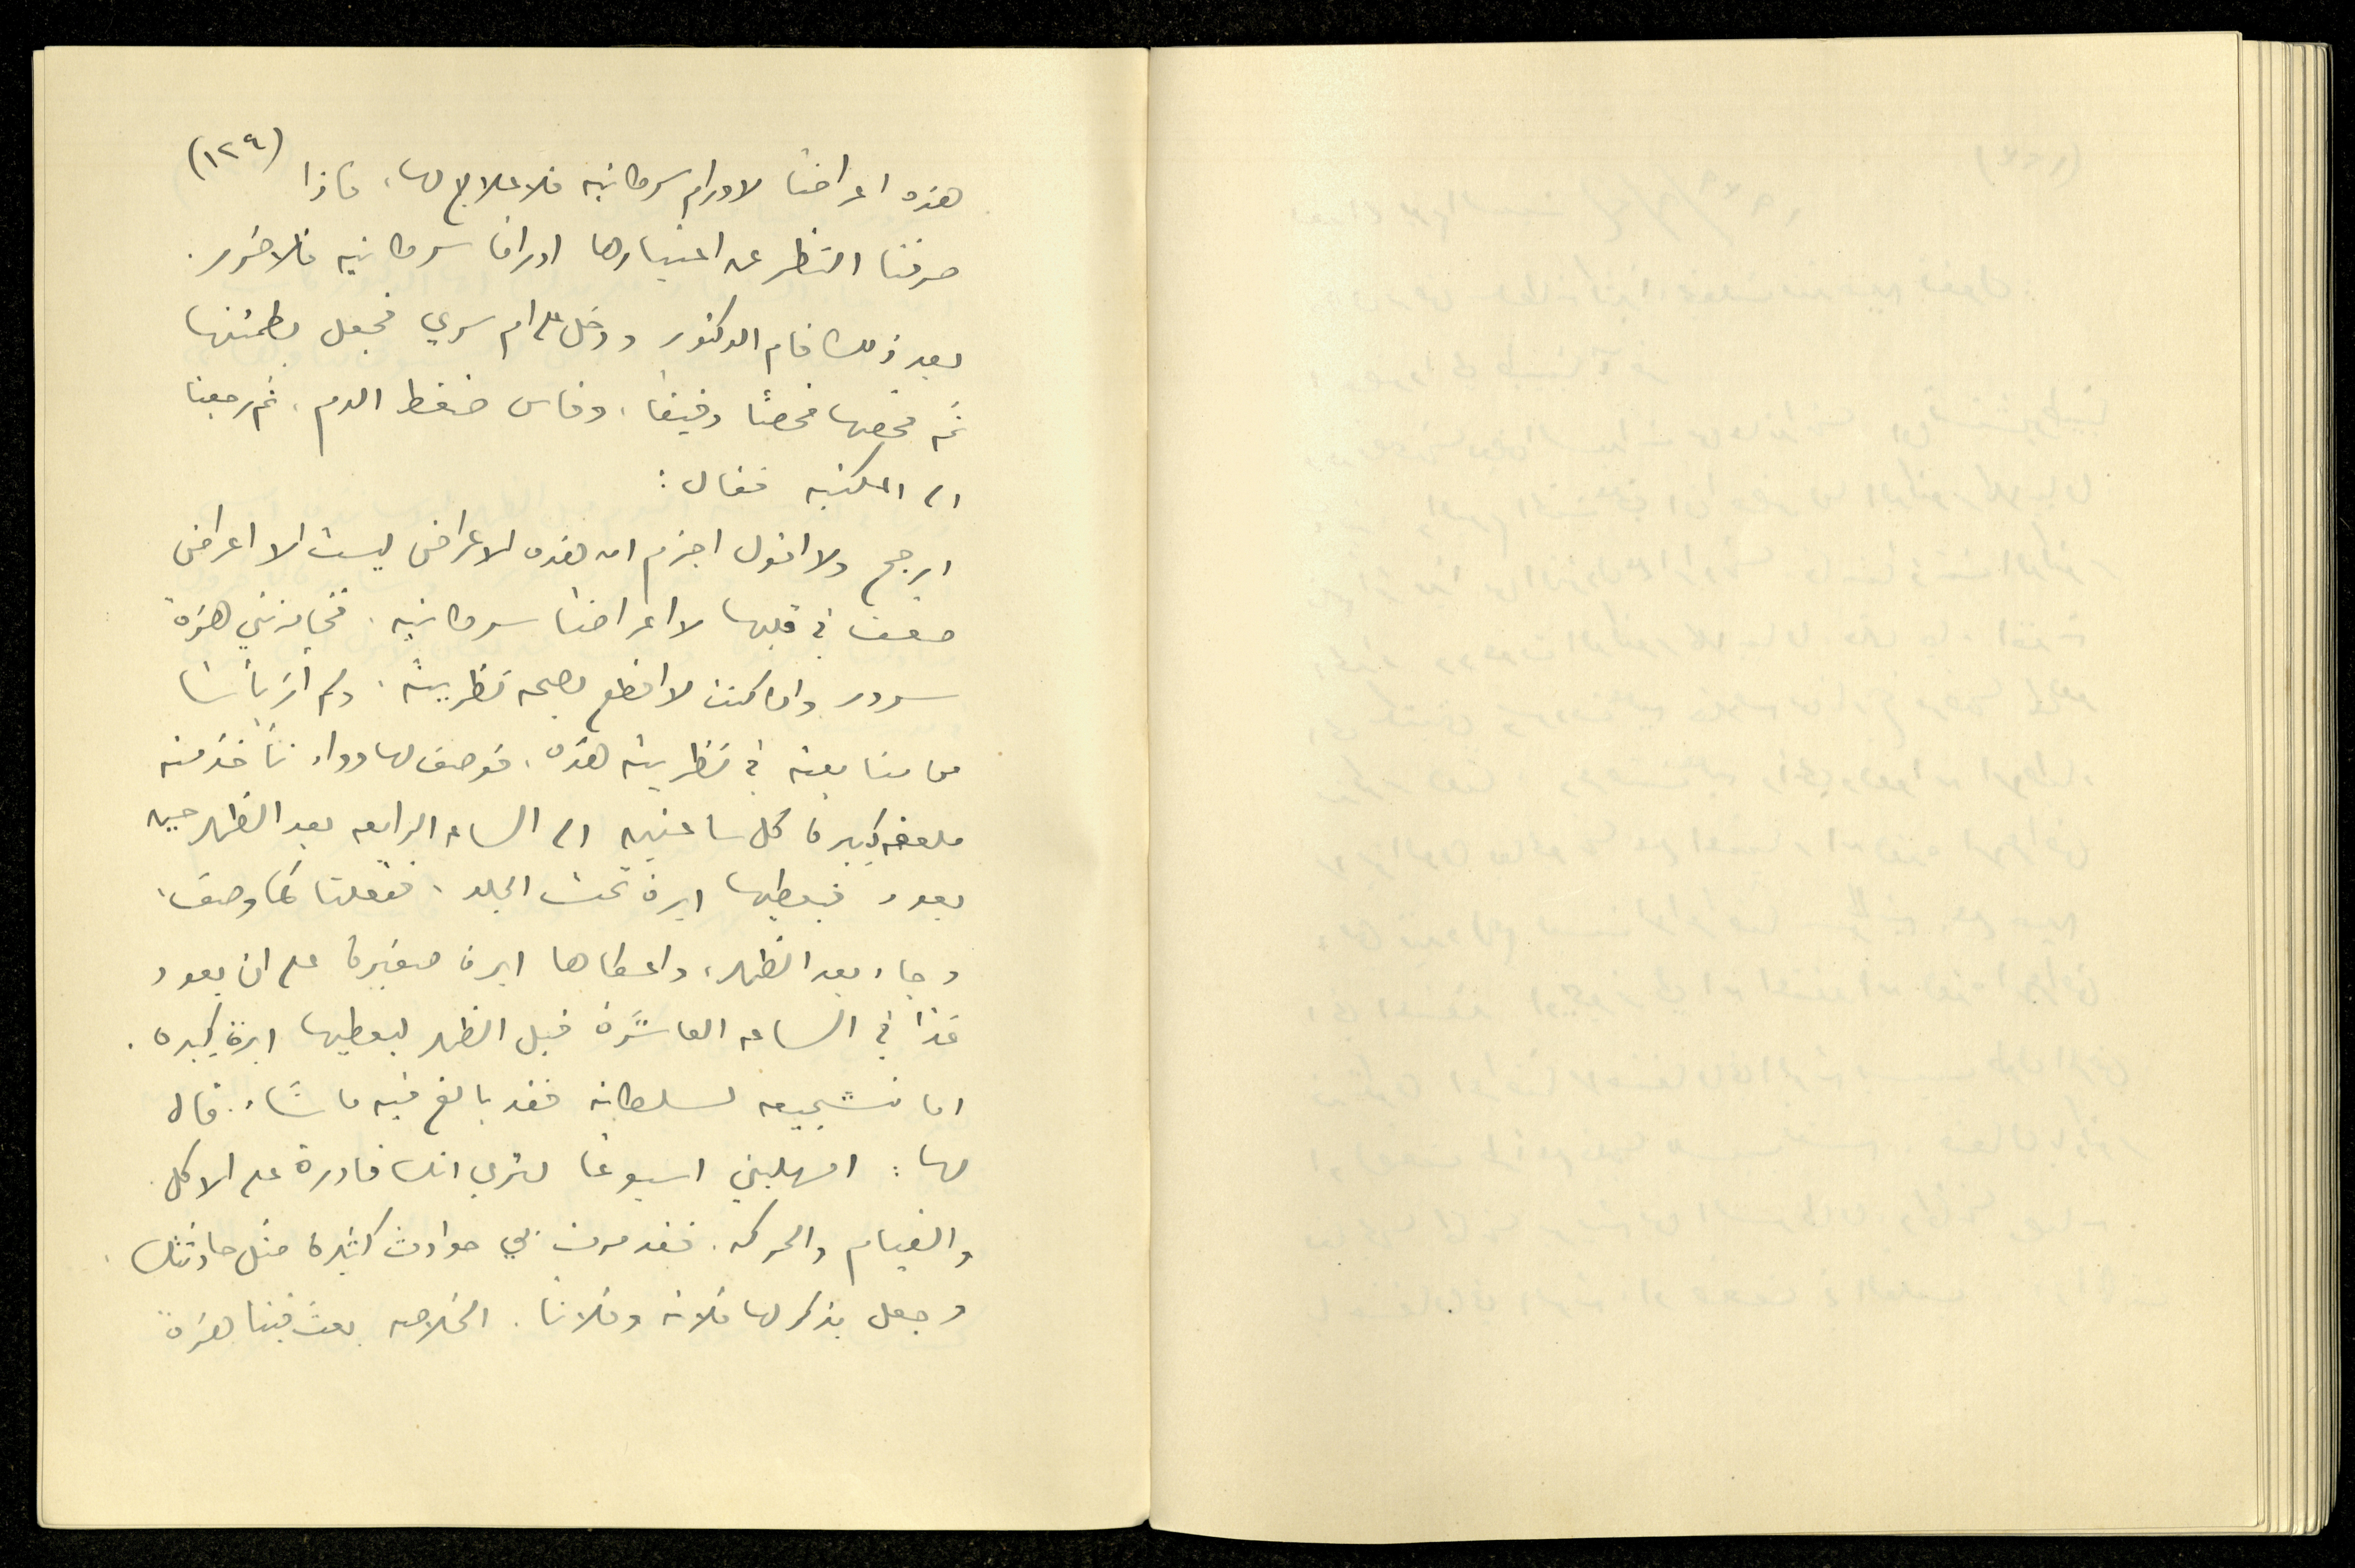 (١٢٩)
هذه اعراضا لاورام سرطانيه فلا علاج لها، فاذا
صرفنا النظر عن اعتبارها اوراما سرطانيه فلا ضرر.
بعد ذلك قام الدكتور ودخل على ام سري فجعل يطمئنها
ثم فحصها فحصًا دقيقا، وقاس ضغط الدم، ثم رجعنا
الى المكتبه فقال:
ارجح ولا اقول اجزم ان هذه الاعراض ليست الا اعراض
ضعف في قلبها لا اعراضا سرطانيه. فخامرتني هزة
سرور وان كنت لا اقطع بصحة نظريته، ولم ار بأسا
من متابعته في نظريته هذه، فوصف لها دواء تأخذ منه
ملعقه كبيرة كل ساعتين الى الساعه الرابعه بعد الظهر حين
يعود فيعطيها ابرة تحت الجلد، ففعلنا كما وصف،
وجاء بعد الظهر، واعطاها ابرة صغيرة على ان يعود
غدا في الساعه العاشرة قبل الظهر ليعطيها ابرة كبيره.
اما تشجيعه لسلطانه فقد بالغ فيه ما شاء. قال
لها: امهليني اسبوعا لتري انك قادرة على الاكل
والقيام والحركه. فقد مرت بي حوادث كثيرة مثل حادثتك.
وجعل يذكر لها فلانه وفلانا. الخلاصه بعث فينا هزة